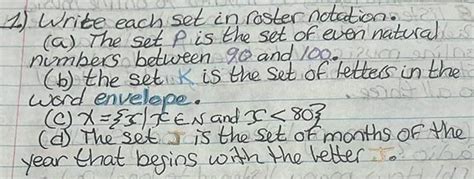 1.) Write each set in roster notation.
(a) The set P is the set of even natural
numbers between 90 and 100.
(b) the set K is the set of letters in the
word envelope.
(c) X = {x | x ∈ N and x < 80}
(d) The set J is the set of months of the
year that begins with the letter J.